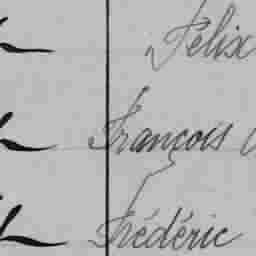 Félix
François
Frédéric